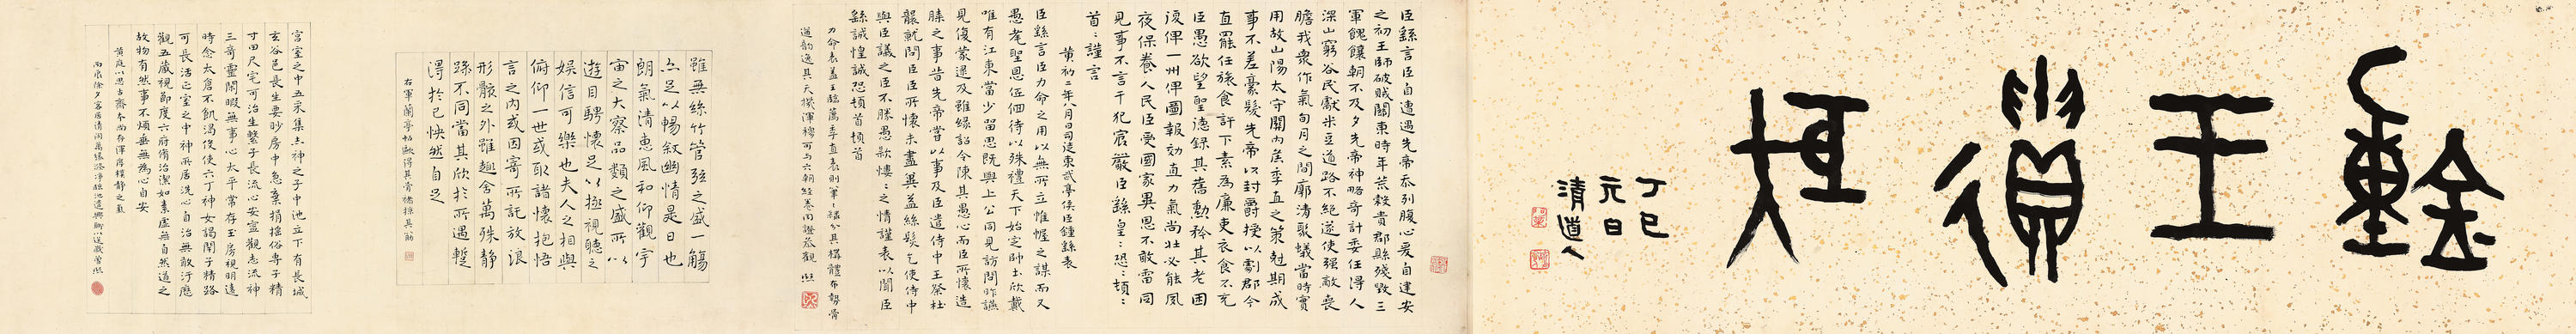 鍾王遺矩
丁巳
元日
清道人
臣繇言臣自遭遇先帝忝列腹心爰自建安
之初王師破賊關東時年荒穀貴郡縣殘毀三
軍餽饟朝不及夕先帝神略奇計委任得人
深山窮谷民獻米豆道路不絕遂使强敵喪
膽我衆作氣旬月之間廓清聚蟻當時實
用故山陽太守關內侯季直之策剋期成
事不差豪髮先帝以封爵授以劇郡今
直罷任旅食許下素為廉吏衣食不充
臣愚欲望聖德錄其舊勳矜其老困
復俾一州俾圖報効直力氣尚壯必能夙
夜保養人民臣受國家異恩不敢雷同
見事不言干犯宸嚴臣繇皇:恐:頓:
首:謹言
黃初二年八月日司徒東武亭侯臣鍾繇表
臣繇言臣力命之用以無所立惟幄之謀而又
愚耄聖恩低佪待以殊禮天下始定師士欣戴
唯有江東當少留思既與上公同見訪問昨讌
見復蒙逮及雖緣詔令陳其愚心而臣所懷造
膝之事昔先帝嘗以事及臣遣侍中王粲杜
襲就問臣臣所懷未盡冀益絲髮乞使侍中
與臣議之臣不勝愚款慺:之情謹表以聞臣
繇誠惶誠恐頓首頓首
力命表蓋王臨薦季直表則筆:分其構體布勢骨
韵逸具天機渾穆可与六朝經卷同證茲觀 熙
雖無絲竹管弦之盛一觴
亦足以暢叙幽情是日也
朗氣清惠風和仰觀宇
宙之大察品類之盛所以
遊目騁懷足以極視聽之
娛信可樂也夫人之相與
俯仰一世或取諸懷抱悟
言之內或因寄所託放浪
形骸之外雖趣舍萬殊静
躁不同當其欣於所遇蹔
得於己怏然自足
右軍蘭亭帖歐得其骨褚採其筋
宮室之中五采集赤神之子中池立下有長城
玄谷邑長生要眇房中急棄捐搖俗專子精
寸田尺宅可治生繫子長流心安寧觀志流神
三奇靈閒暇無事心太平常存玉房視明達
時念太倉不飢渴役使六丁神女謁閉子精路
可長活正室之中神所居洗心自治無敢汙歷
觀五藏視節度六府脩治潔如素虛無自然道之
故物有然事不煩垂無為心自安
黃庭以思古齋本尚存渾脩樸静之氣